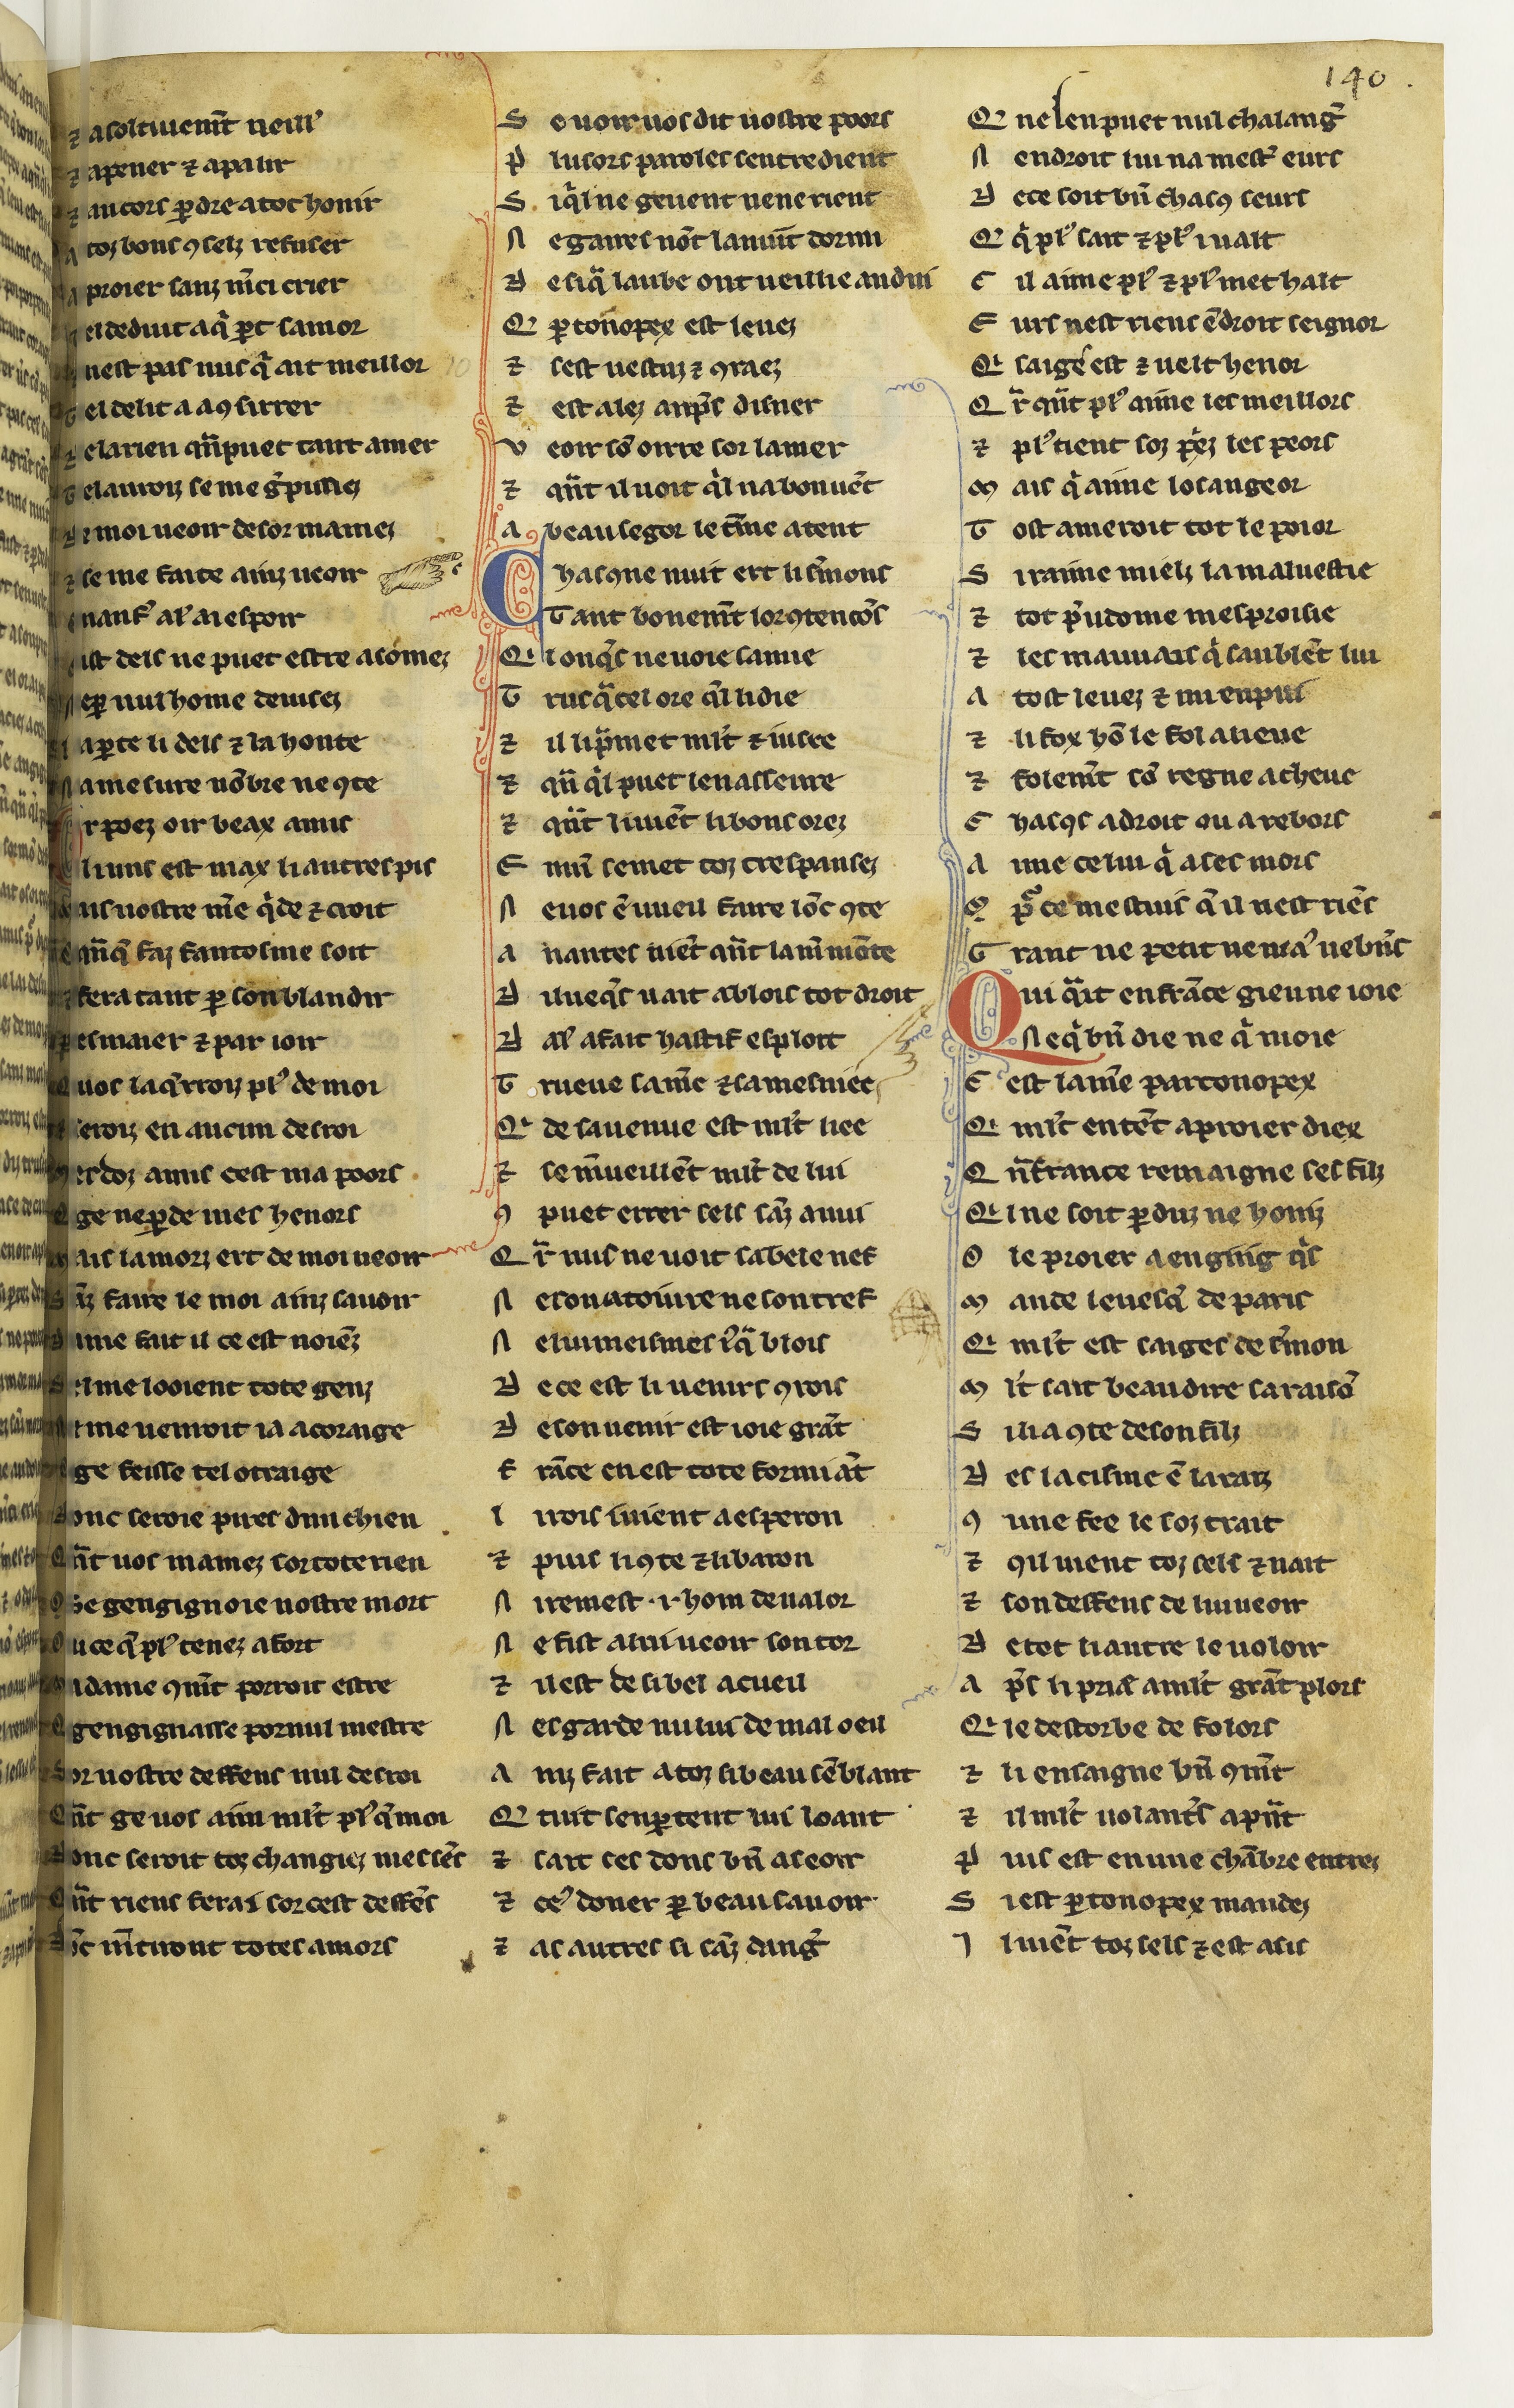 140
⁊ asoltiuem̃t neill'
⁊ apener ⁊ apalir
⁊ aucors ꝑdre atoc honir
A toz bons ꝯselz refuser
A proier sanz m̃ci crier
el deduit aq̇ ꝑt samor
nest pas nus q̇ ait meillor
T el delit a aꝯsirrer
⁊ elarien qñ puet tant amer
T elauroiz se me g̃pissiez
moi ueoir desor mamez
⁊ se me faite ainz ueoir
naut' al' ai espoir
ist dels ne puet estre asómez
N eꝑ nul home deuisez
aꝑte li dels ⁊ la honte
N amesure nõbre ne ꝯte
r poez oir beax amis
li uns est max li autres pis
us uostre m̃e q̇de ⁊ croit
qñq̃ faz fantosme soit
fera tant ꝑ son blandir
esmaier ⁊ par ioir
uos laq̃rroiz pl' de moi
seroiz en aucun desroi
es doz amis cest ma poors
Q ge neꝑde mes henors
ais lamorz ert de moi ueoir
S ãz faire le moi ainz sauoir
ame fait il ce est noiẽz
S el me looient tote genz
ne me uenroit ia acoraige
ge feisse tel otraige
D onc seroie pires dun chien
Q ñt uos mamez sor tote rien
Se gengignoie uostre mort
O u ce q̃ pl' tenez afort
adame ꝯm̃t porroit estre
Q gengignasse por nul mestre
S or uostre deffens nul desroi
Q ñt ge uos aim ml't pl' q̃ moi
D onc seroit toz changiez mes sẽs
Q ñt riens ferai sor cest deffẽs
D õc m̃tiront totes amors
S e uoir uos dit uostre poors
P lusors paroles sentredient
S iq̃l ne geuent ne ne rient
N egaires nõt lanuit dormi
D esiq̃ laube ont ueillie andui
Q ꝑtonopex est leuez
⁊ sest uestuz ⁊ ꝯraez
⁊ est alez anp̃s disner
V eoir sõ oirre sor lamer
⁊ qñt il uoit q̃l na bon uẽt
A beau segor le t̃me atent
C hascune nuit ert li s̃mons
T ant bonem̃t lor ꝯtencõs
Q i onq̃s ne uoie samie
T rusq̃ cel ore q̃l li die
⁊ il li ꝓmet ml't ⁊ iure
⁊ qñ q̃l puet len asseure
⁊ qñt li uiẽt li bons orez
E nmi se met toz trespansez
N e uos ẽ uueil faire lõc ꝯte
A nantes uiẽt qñt lanm̃ mõte
D iluecq̃s uait a blois tot droit
D al' afait hastif esploit
T rueue sam̃e ⁊ sa mesniee
Q i de sa uenue est ml't liee
⁊ se m̃ueillẽt ml't de lui
ꝯ puet errer sels sãz anui
Q r̃ nus ne uoit sabele nef
N e son atoiure ne son tref
N e lui meismes iq̃ blois
D ece est li uenirs ꝯrois
D e son uenir est ioie grãt
F rãce en est tote formiãt
L i rois iuient a esperon
⁊ puis li ꝯte ⁊ li baron
N i remest .i. hom de ualor
N e fist a lui ueoir son tor
⁊ il est de si bel acueil
N es garde nului de mal oeil
A niz fait a toz si beau sẽblant
Q tuit senꝑtent lui loant
⁊ sait ses dons bñ aseoir
⁊ ce' doner ꝑ beau sauoir
⁊ as autres si sãz dang̃
Q ne len puet nul chalang̃
N endroit lui na mest' eurs
D ece soit bñ chacꝯ seurs
Q q̇ pl' sait ⁊ pl' iualt
C il aime pl' ⁊ pl' met halt
E urs nest riens ẽdroit seignor
Q i saige est ⁊ uelt henor
Q r̃ qñt pl' aime les meillors
⁊ pl' tient soz p̃ez les peors
M ais q̇ aime losangeor
T ost ameroit tot le poior
S i raime mielz la maluestie
⁊ tot p̃udome mesproisie
⁊ les mauuais q̇ sanblẽt lui
A tost leuez ⁊ mi enpui
⁊ li fox hõ le fol alieue
⁊ folem̃t sõ regne acheue
C hacꝯs adroit ou a rebors
A ime celui q̇ a ses mors
E p̃ ce me stuis q̃ il nest riẽs
G rant ne petit ne ma' ne bñs
Q ui q̃it enfrãce gieu ne ioie
N eq̇ bñ die ne q̇ moie
C est lam̃e partonopex
Q i ml't entẽt a proier diex
Q ñ france remaigne ses filz
Q i ne soit ꝑduz ne honiz
O le proier a engiñg q̃s
M ande leuesq̃ de paris
Q i ml't est saiges de s̃mon
M l't sait beau dire sa raisõ
S i li a ꝯte de son filz
D es la cisme ẽ laraiz
ꝯ une fee le soz trait
⁊ ꝯil uient toz sels ⁊ uait
⁊ son deffens de lui ueoir
D e tot li autre le uoloir
A p̃s li prie a ml't grãt plors
Q i le destorbe de folors
⁊ li ensaigne bñ ꝯm̃t
⁊ il ml't uolant̃s apñt
P uis est en une chãbre entrez
S i est ꝑtonopex mandez
I l uiẽt toz sels ⁊ est asis